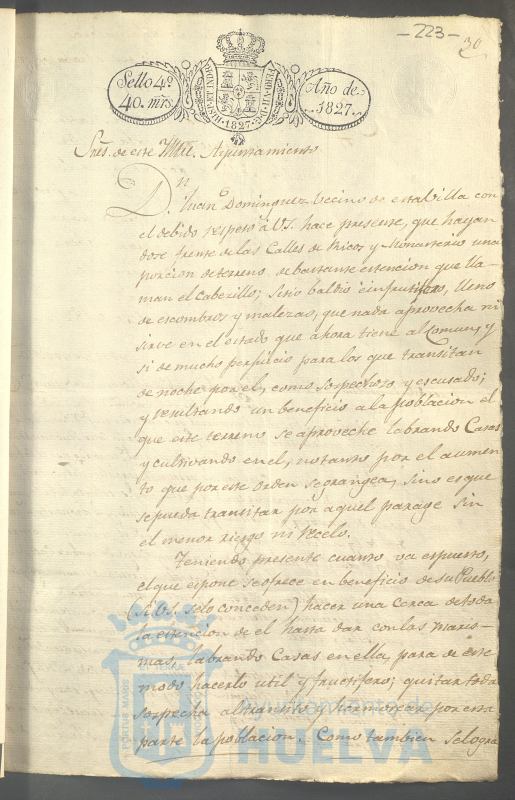 -223-
30
Sello 4º
40. mrs
HISPANIARUM
1827
Año de
1827.
Sres. de este Iltre. Ayuntamiento
Dn
Juanº Dominguez Vecino de esta Villa con
el debido respeto á VS. hace presente, que hayan
dose frente de las Calles de Ricos y Monasterio una
porcion de terreno, de bastante estencion que lla-
man el Cabezillo; Sitio baldio é infrutifero, lleno
de escombros y malezas, que nada aprovecha ni
sirve en el estado que ahora tiene al Comun, y
si de mucho perjuicio para los que transitan
de noche por el, como sospechoso y escusado;
y resultando un beneficio a la poblacion el
que este terreno se aproveche labrando Casas
y cultivando en el, no tanto por el aumen
to que por este orden se grangea, sino es que
se pueda transitar por aquel parage sin
el menor riesgo ni recelo.
Teniendo presente cuanto va espuesto,
el que espone se ofrece en beneficio de su Pueblo
(si VS. se lo conceden) hacer una Cerca de toda
la estencion de el hasta dar con las maris-
mas, labrando Casas en ella, para de este
modo hacerlo util y fructifero; quitar toda
sospecha al transito y hermosear por esta
parte la poblacion. Como tambien se logra
Ayuntamiento de
HUELVA